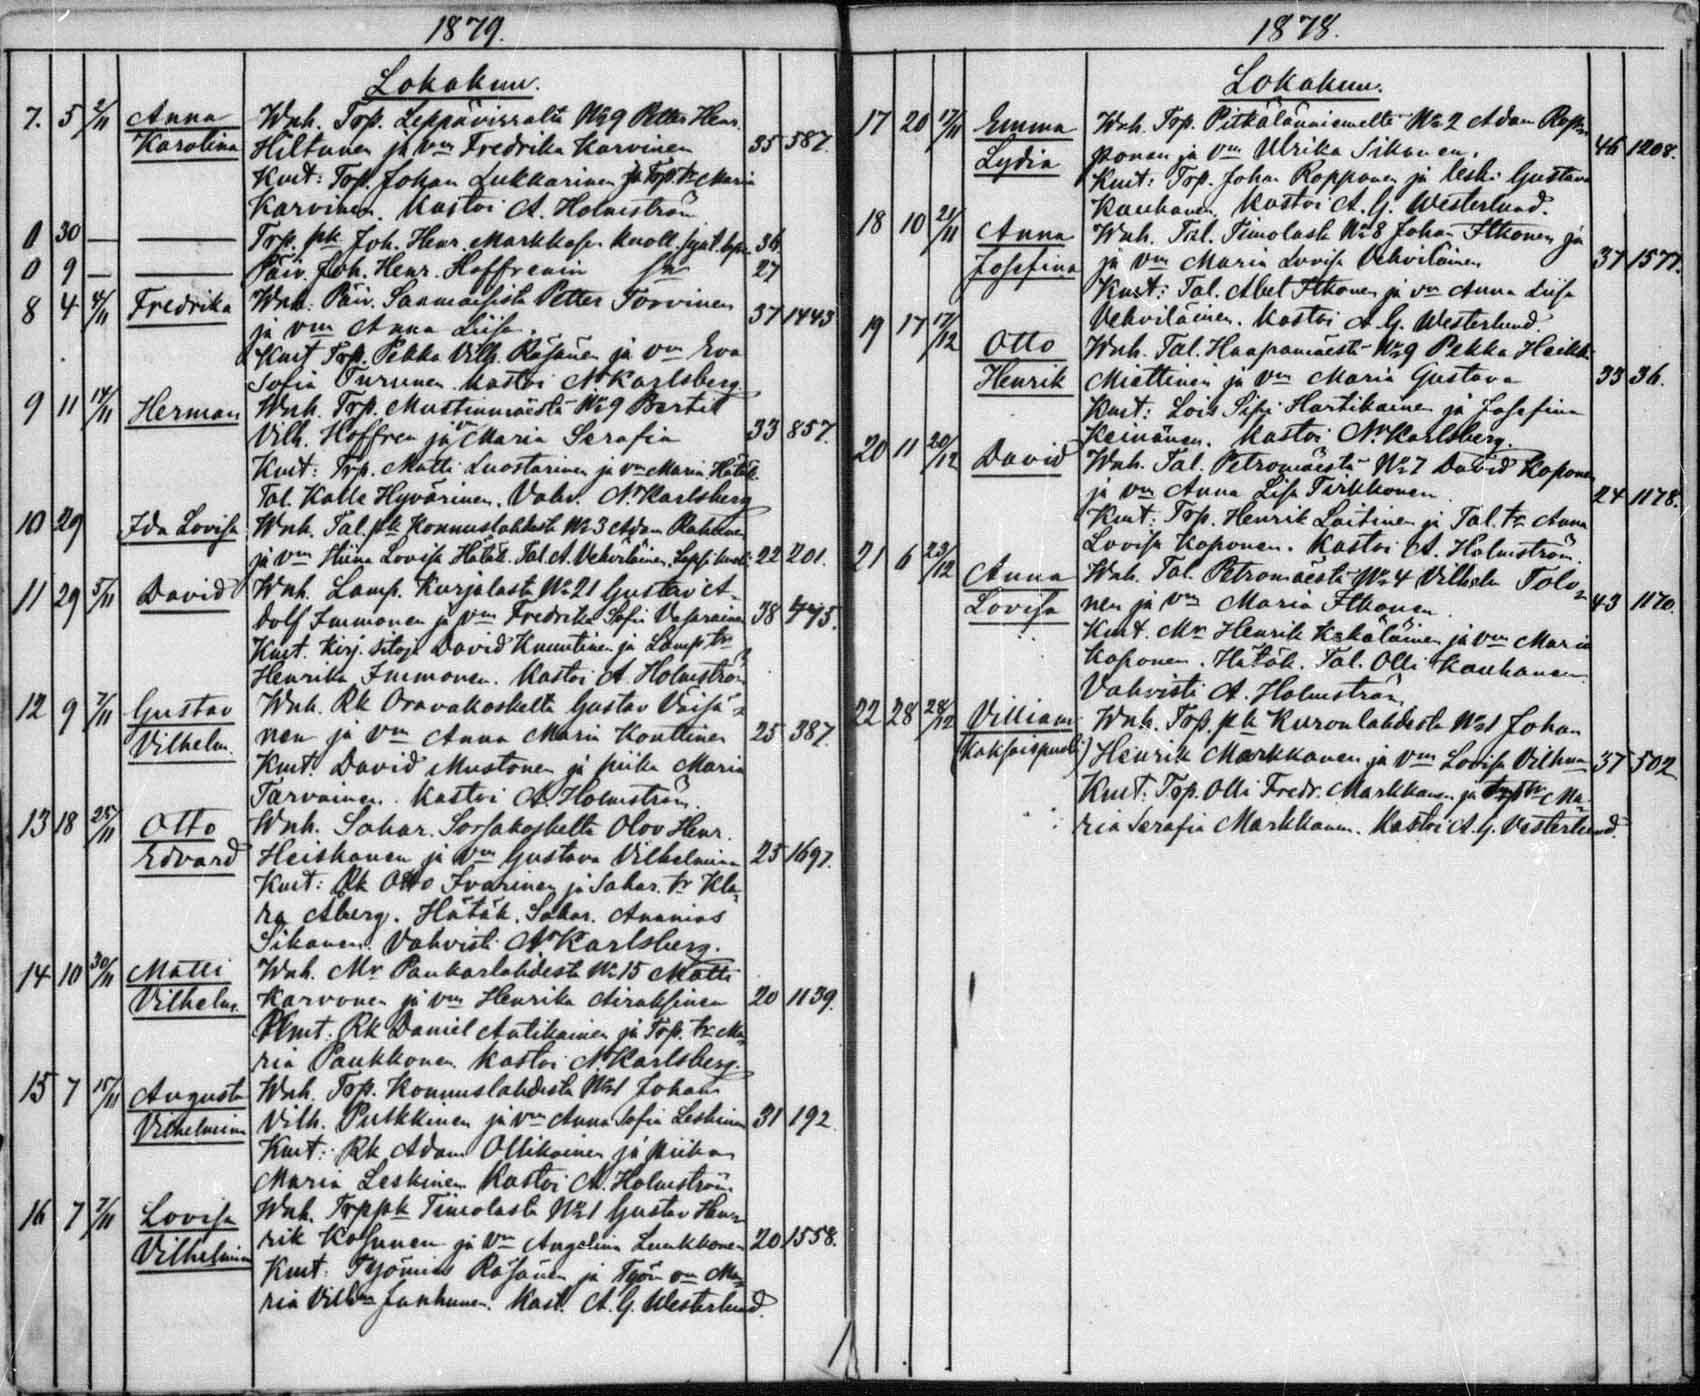 1879.
Lokakuu.
7. 5 2/11 Anna Wnh. Trp. Leppävirralta No 9 Petter Henr.
Karolina Hiltunen ja vm Fredrika Karvinen 35 587.
Kmt: Trp. Johan Lukkarinen ja Trp. tr Maria
Karvinen. Kastoi A. Holmström
0 30 — — Trp. pk Joh. Henr. Markkasen kuoll. synt. lapsi 36
0 9 — — Päiv. Joh. Henr. Hoffrenin 27
8 4 4/11 Fredrika Wnh. Päiv. Saamaisista Petter Torvinen 37 1443
ja vm Anna Liisa.
Kmt Trp. Pekka Vilh. Räsänen ja vm Eva
Sofia Turunen. Kastoi N Karlsberg.
9 11 14/11 Herman Wnh. Trp. Mustinmäestä No 9 Bertil
Vilh. Hoffren ja vm Maria Serafia 33 857.
Kmt: Trp. Matti Luostarinen ja vm Maria. Hätäk.
Tal. Kalle Hyvärinen. Vahv. N Karlsberg
10 29 Ida Lovisa Wnh. Tal. pk Konnuslahdesta No 3 Adam Rahunen
ja vm Hiina Lovisa. Hätäk. Tal. A. Vehviläinen. Lapsi kuoli 22 201.
11 29 5/11 David Wnh. Lamp. Kurjalasta No 21 Gustav A-
dolf Immonen ja vm Fredrika Sofia Vasarainen 38 445.
Kmt. Kirj. sitoja David Knuutinen ja Lamp. tr
Henrika Immonen. Kastoi A. Holmström
12 9 7/11 Gustav Wnh. Rk Oravakoskelta Gustav Väisä-
Vilhelm. nen ja vm Anna Maria Konttinen 25 387.
Kmt. David Mustonen ja piika Maria
Tarvainen. Kastoi A. Holmström.
13 18 25/11 Otto Wnh. Sahar. Sorsakoskelta Olov Henr.
Edvard Heiskanen ja vm Gustava Vilhelmina 25 1697.
Kmt: Rk Otto Ivarinen ja Sahar. tr Kla-
ra Åberg. Hätäk. Sahar. Ananias
Sikanen. Vahvisti N Karlsberg.
14 10 30/11 Matti Wnh. Mr Paukarlahdesta No 15 Matti
Vilhelm. Karvonen ja vm Henrika Airaksinen 20 1139.
Kmt. Rk Daniel Antikainen ja Trp. tr Ma-
ria Paukkonen. Kastoi N Karlsberg.
15 7 15/11 Augusta Wnh. Trp. Konnuslahdesta No 1 Johan
Vilhelmina Vilh. Pulkkinen ja vm Anna Sofia Leskinen 31 192
Kmt: Rk Adam Ollikainen ja piika
Maria Leskinen. Kastoi A. Holmström
16 7 7/11 Lovisa Wnh. Trp pk Timolasta No 1 Gustav Hen-
Vilhelmina rik Kosunen ja vm Angelina Luukkonen 20 1558.
Kmt. Työmies Räsänen ja Työm vm Ma-
ria Vilhna Janhunen. Kast. A. G. Westerlund.
1878.
Lokakuu.
17 20 17/11 Emma Wnh. Trp. Pitkälänniemeltä No 2 Adam Rop-
Lydia ponen ja vm Ulrika Sikanen. 46 1208.
Kmt: Trp. Johan Ropponen ja leski Gustava
Kauhanen. Kastoi A. G. Westerlund.
18 10 21/11 Anna Wnh. Tal. Timolasta No 8 Johan Itkonen ja
Josefina ja vm Maria Lovisa Vehviläinen 37 1577.
Kmt: Tal. Abel Itkonen ja vm Anna Liisa
Vehviläinen. Kastoi A. G. Westerlund.
19 17 17/12 Otto Wnh. Tal. Haapamäestä No 9 Pekka Heikki
Henrik Miettinen ja vm Maria Gustava 33 36.
Kmt: Lois Sipi Hartikainen ja Josefina
Keinänen. Kastoi N Karlsberg.
20 11 20/12 David Wnh. Tal. Petromäestä No 7 David Koponen
ja vm Anna Lisa Tirkkonen. 24 1178.
Kmt: Trp. Henrik Laitinen ja Tal. tr Anna
Lovisa Koponen. Kastoi A. Holmström
21 6 23/12 Anna Wnh. Tal. Petromäestä No 4 Vilhelm Tolo-
Lovisa nen ja vm Maria Itkonen 43 1170.
Kmt. Mr Henrik Kekäläinen ja vm Maria
Koponen. Hätäk. Tal. Olli Kauhanen.
Vahvisti A. Holmström
22 28 28/12 Villiam Wnh. Trp. pk Kuronlahdesta No 1 Johan
(Kaksoispuoli) Henrik Markkanen ja vm Lovisa Vilhna 37 502
Kmt: Trp. Olli Fredr. Markkanen ja tr Ma-
ria Serafia Markkanen. Kastoi A. G. Westerlund.